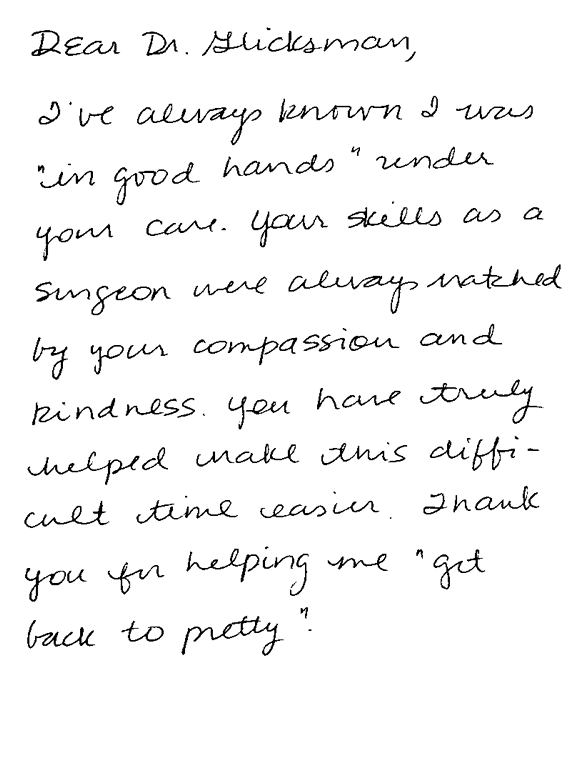 Dear Dr. Glicksman,
I've always known I was
"in good hands" under
your care. Your skills as a
surgeon were always matched
by your compassion and
kindness. You have truly
helped make this diffi-
cult time easier. Thank
you for helping me "get
back to pretty".